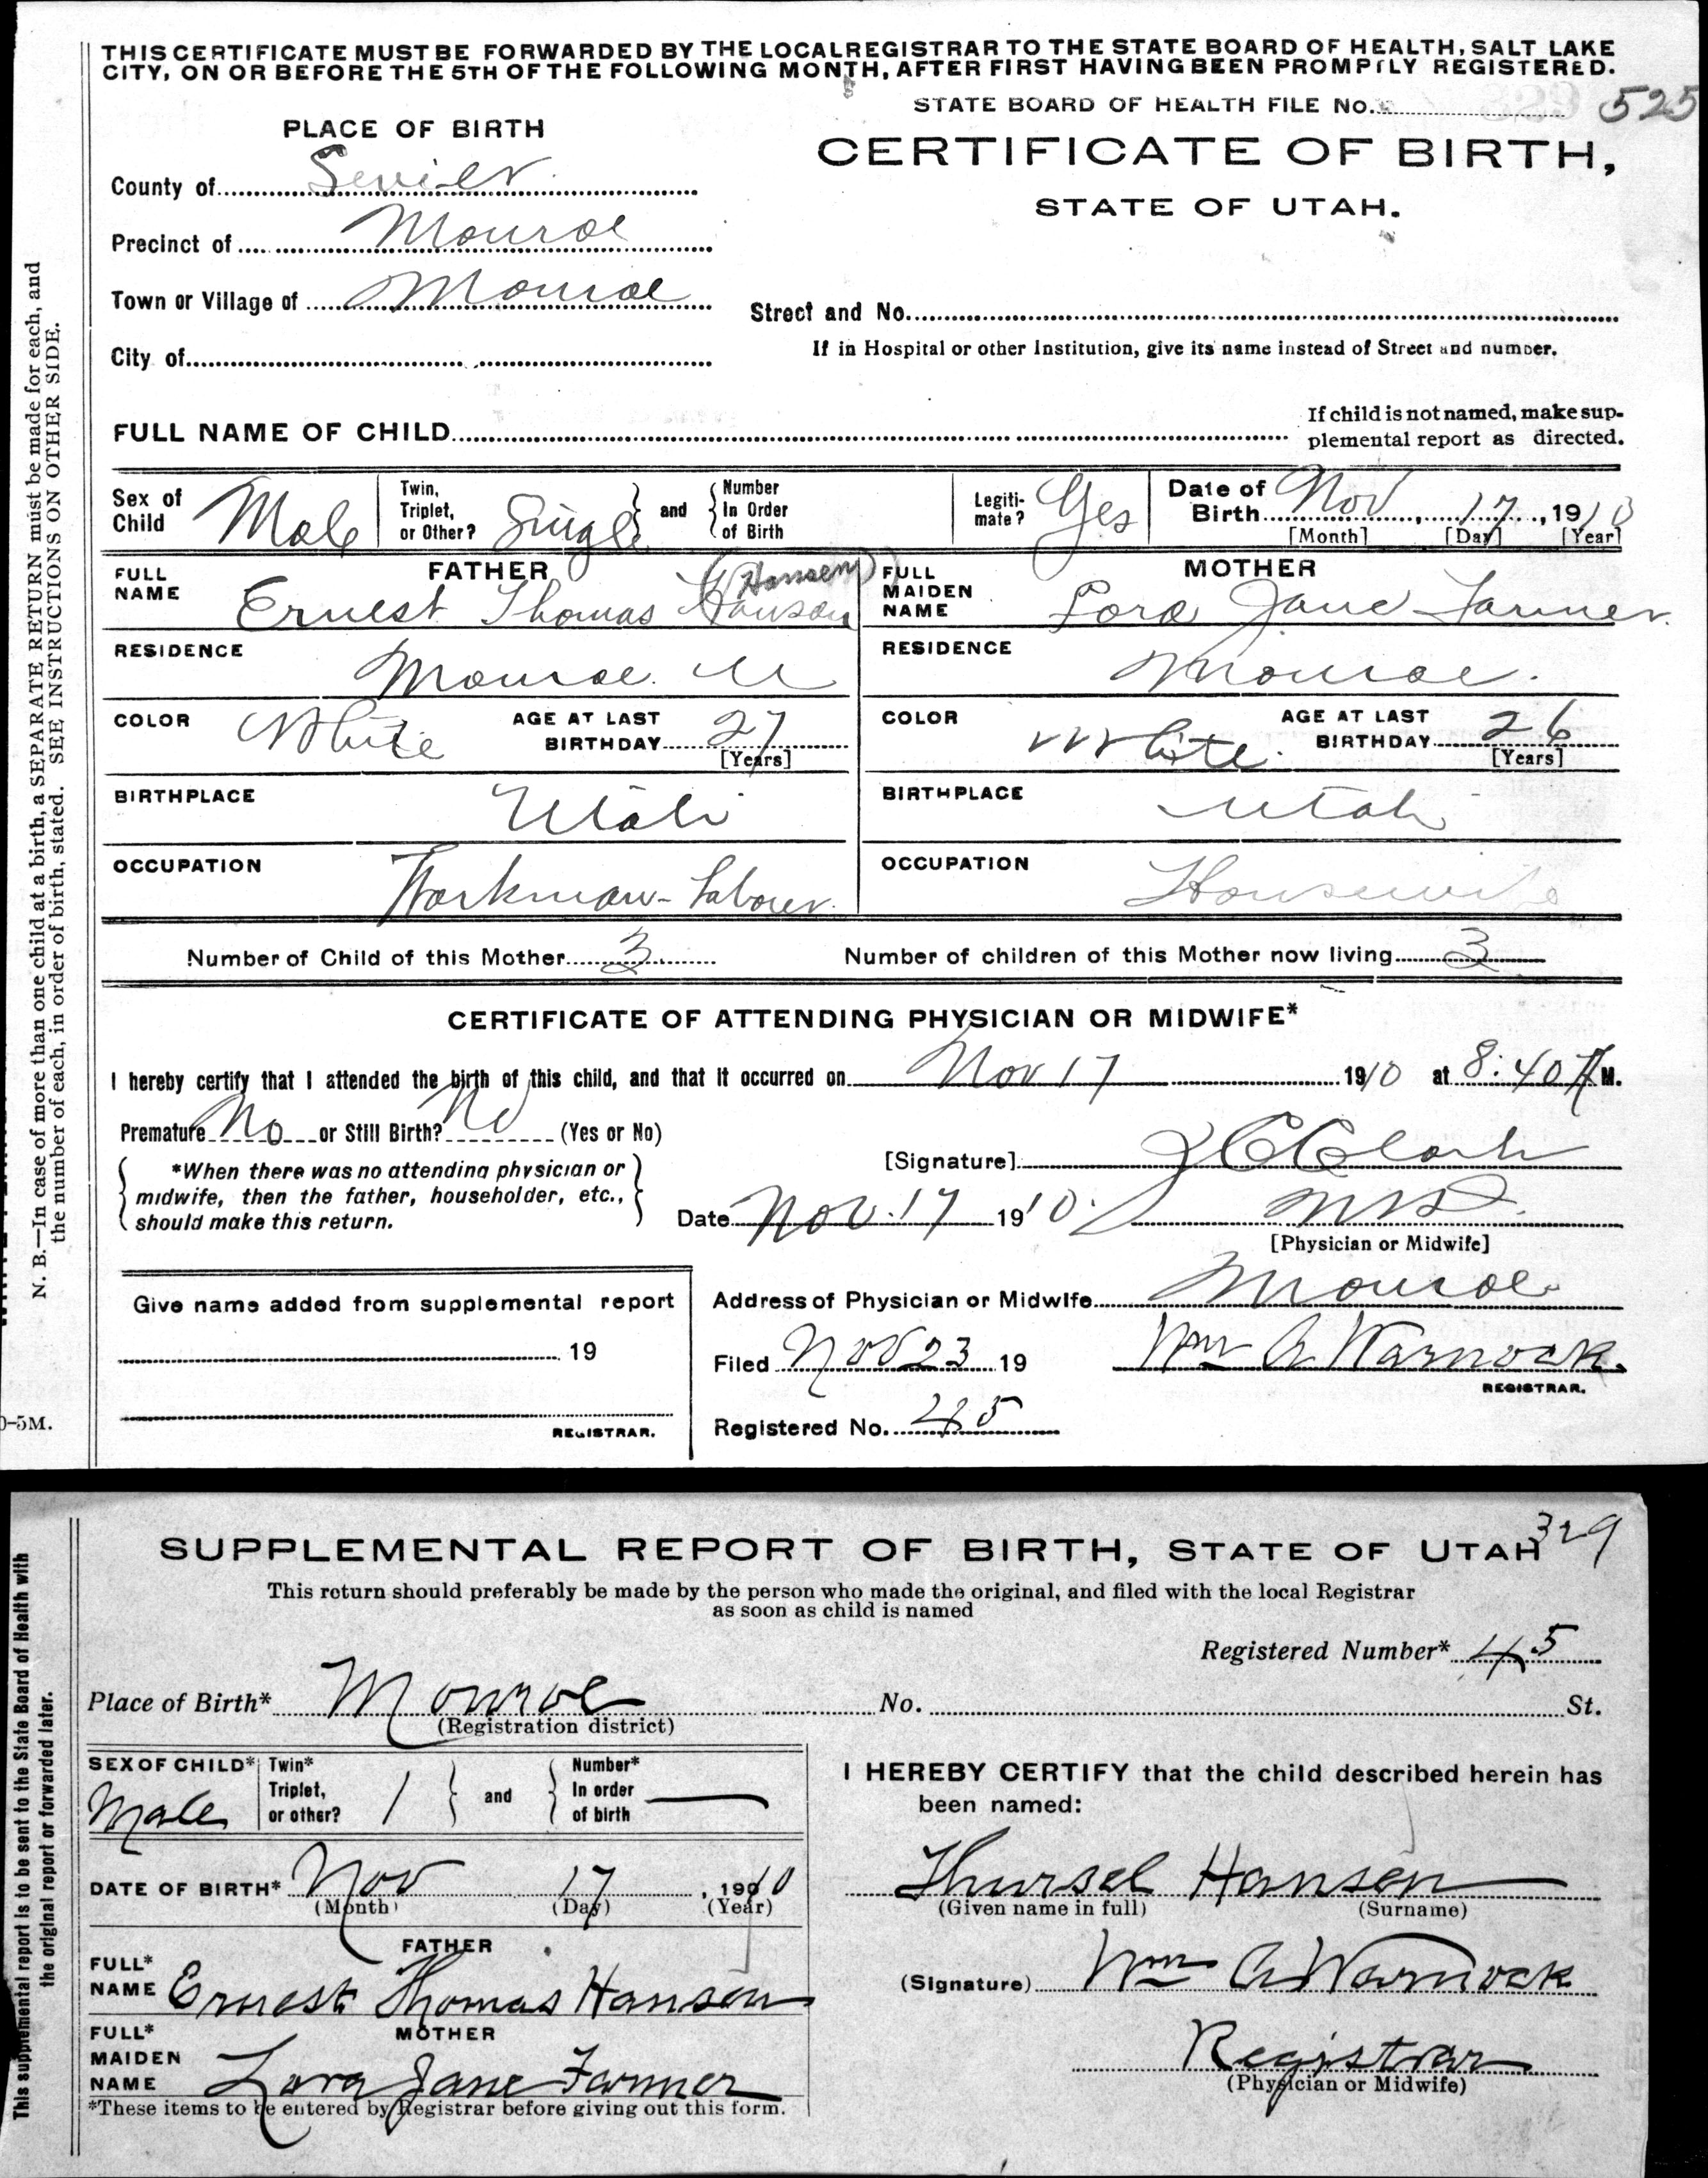 THIS CERTIFICATE MUST BE FORWARDED BY THE LOCAL REGISTRAR TO THE STATE BOARD OF HEALTH, SALT LAKE
CITY, ON OR BEFORE THE 5TH OF THE FOLLOWING MONTH, AFTER FIRST HAVING BEEN PROMPTLY REGISTERED.
STATE BOARD OF HEALTH FILE No. 525
PLACE OF BIRTH
CERTIFICATE OF BIRTH,
STATE OF UTAH.
County of Sevier
Precinct of Monroe
Town or Village of Monroe
Street and No.
City of
If in Hospital or other Institution, give its name instead of Street and number.
FULL NAME OF CHILD
If child is not named, make sup-
plemental report as directed.
Sex of Child Male
Twin, Triplet, or Other? Single and Number In Order of Birth
Legiti-mate? Yes
Date of Birth Nov 17, 1910
[Month] [Day] [Year]
FATHER
FULL NAME Ernest Thomas Hanson (Hansen)
MOTHER
FULL MAIDEN NAME Lora Jane Farmer
RESIDENCE Monroe. U
RESIDENCE Monroe.
COLOR White AGE AT LAST BIRTHDAY 27 [Years]
COLOR White. AGE AT LAST BIRTHDAY 26 [Years]
BIRTHPLACE Utah
BIRTHPLACE Utah
OCCUPATION Workman-Labourer
OCCUPATION Housewife
Number of Child of this Mother 3 Number of children of this Mother now living 3
CERTIFICATE OF ATTENDING PHYSICIAN OR MIDWIFE*
I hereby certify that I attended the birth of this child, and that it occurred on Nov 17 1910 at 8:40 A M.
Premature No or Still Birth? No (Yes or No)
*When there was no attending physician or
midwife, then the father, householder, etc.,
should make this return.
[Signature] Clark
Date Nov. 17 1910. MD.
[Physician or Midwife]
Give name added from supplemental report
19
REGISTRAR.
Address of Physician or Midwife Monroe
Filed Nov 23 19 Wm A Warnock.
REGISTRAR.
Registered No. 45
N. B.—In case of more than one child at a birth, a SEPARATE RETURN must be made for each, and
the number of each, in order of birth, stated. SEE INSTRUCTIONS ON OTHER SIDE.
0-5M.
329
SUPPLEMENTAL REPORT OF BIRTH, STATE OF UTAH
This return should preferably be made by the person who made the original, and filed with the local Registrar
as soon as child is named
Registered Number* 45
Place of Birth* Monroe No. St.
(Registration district)
SEX OF CHILD* Male
Twin* Triplet, or other? 1 and Number* In order of birth —
DATE OF BIRTH* Nov 17, 1910
(Month) (Day) (Year)
FATHER
FULL* NAME Ernest Thomas Hansen
MOTHER
FULL* MAIDEN NAME Lora Jane Farmer
*These items to be entered by Registrar before giving out this form.
I HEREBY CERTIFY that the child described herein has
been named:
Thursel Hansen
(Given name in full) (Surname)
(Signature) Wm A Warnock
Registrar
(Physician or Midwife)
This supplemental report is to be sent to the State Board of Health with
the original report or forwarded later.